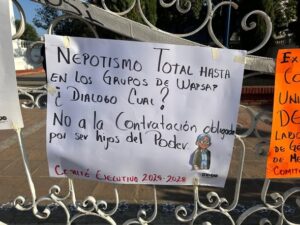 Nepotismo Total hasta
en los Grupos de Wapsa?
¿Dialogo Cual?
No a la Contratación obligada
por ser hijos del Poder
Comité Ejecutivo 2025-2028
Ex
Co
Uni
De
Labo
de Go
de Me
Comit